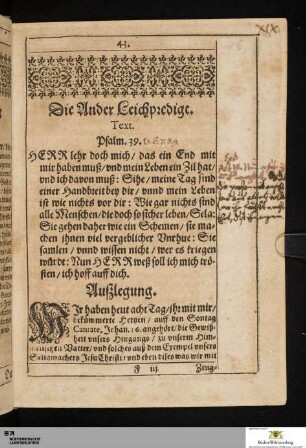 43.
XIX
Die Ander Leichpredigt.
Text.
Psalm. 39.
HERR lehr doch mich/ das ein End mit
mir haben muß/ vnd mein Leben ein Zil hat/
vnd ich davon muß: Sihe/ meine Tag sind
einer Handbreit bey dir/ vnnd mein Leben
ist wie nichts vor dir: Wie gar nichts sind
alle Menschen/ die doch so sicher leben/ Sela:
Sie gehen daher wie ein Schemen/ sie ma-
chen jhnen viel vergeblicher Vnrhue: Sie
samlen/ vnnd wissen nicht/ wer es kriegen
würdt: Nun HERR weß soll ich mich trö-
sten/ ich hoff auff dich.
Außlegung.
WIr haben heut acht Tag/ jhr mit mir/
bekümmerte Hertzen/ auff den Sontag
Cantate, Johan. 16. angehört/ die Gewiß-
heit vnsers Hingangs/ zu vnserm Him-
Vatter/ vnd solches auß dem Exempel vnsers
Seligmachers Jesu Christi: vnd eben dises was wir mit
F iij Zeug-